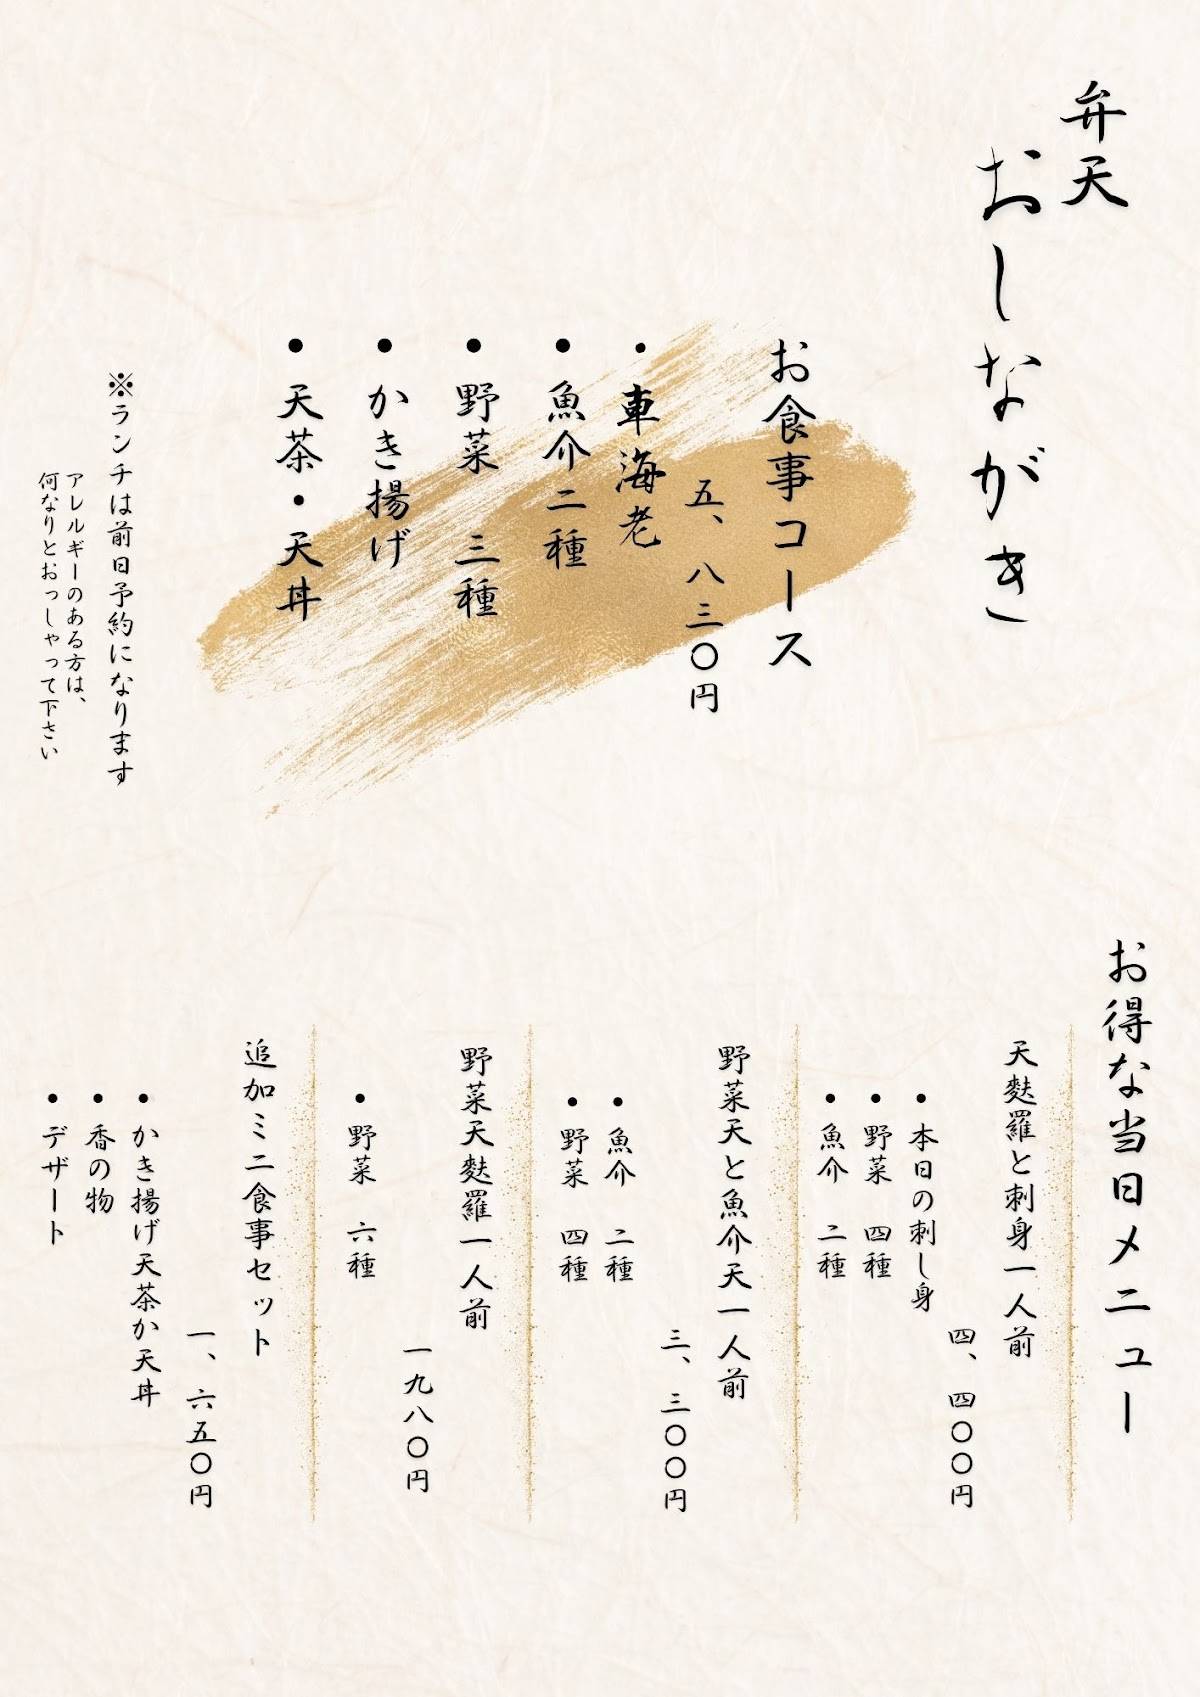 弁天
おしながき
お食事コース
五、八三〇円
・車海老
・魚介二種
・野菜 三種
・かき揚げ
・天茶・天丼
※ランチは前日予約になります
アレルギーのある方は、
何なりとおっしゃって下さい
お得な当日メニュー
天麩羅と刺身一人前
四、四〇〇円
・本日の刺し身
・野菜 四種
・魚介 二種
野菜天と魚介天一人前
三、三〇〇円
・魚介 二種
・野菜 四種
野菜天麩羅一人前
一九八〇円
・野菜 六種
追加ミニ食事セット
一、六五〇円
・かき揚げ天茶か天丼
・香の物
・デザート